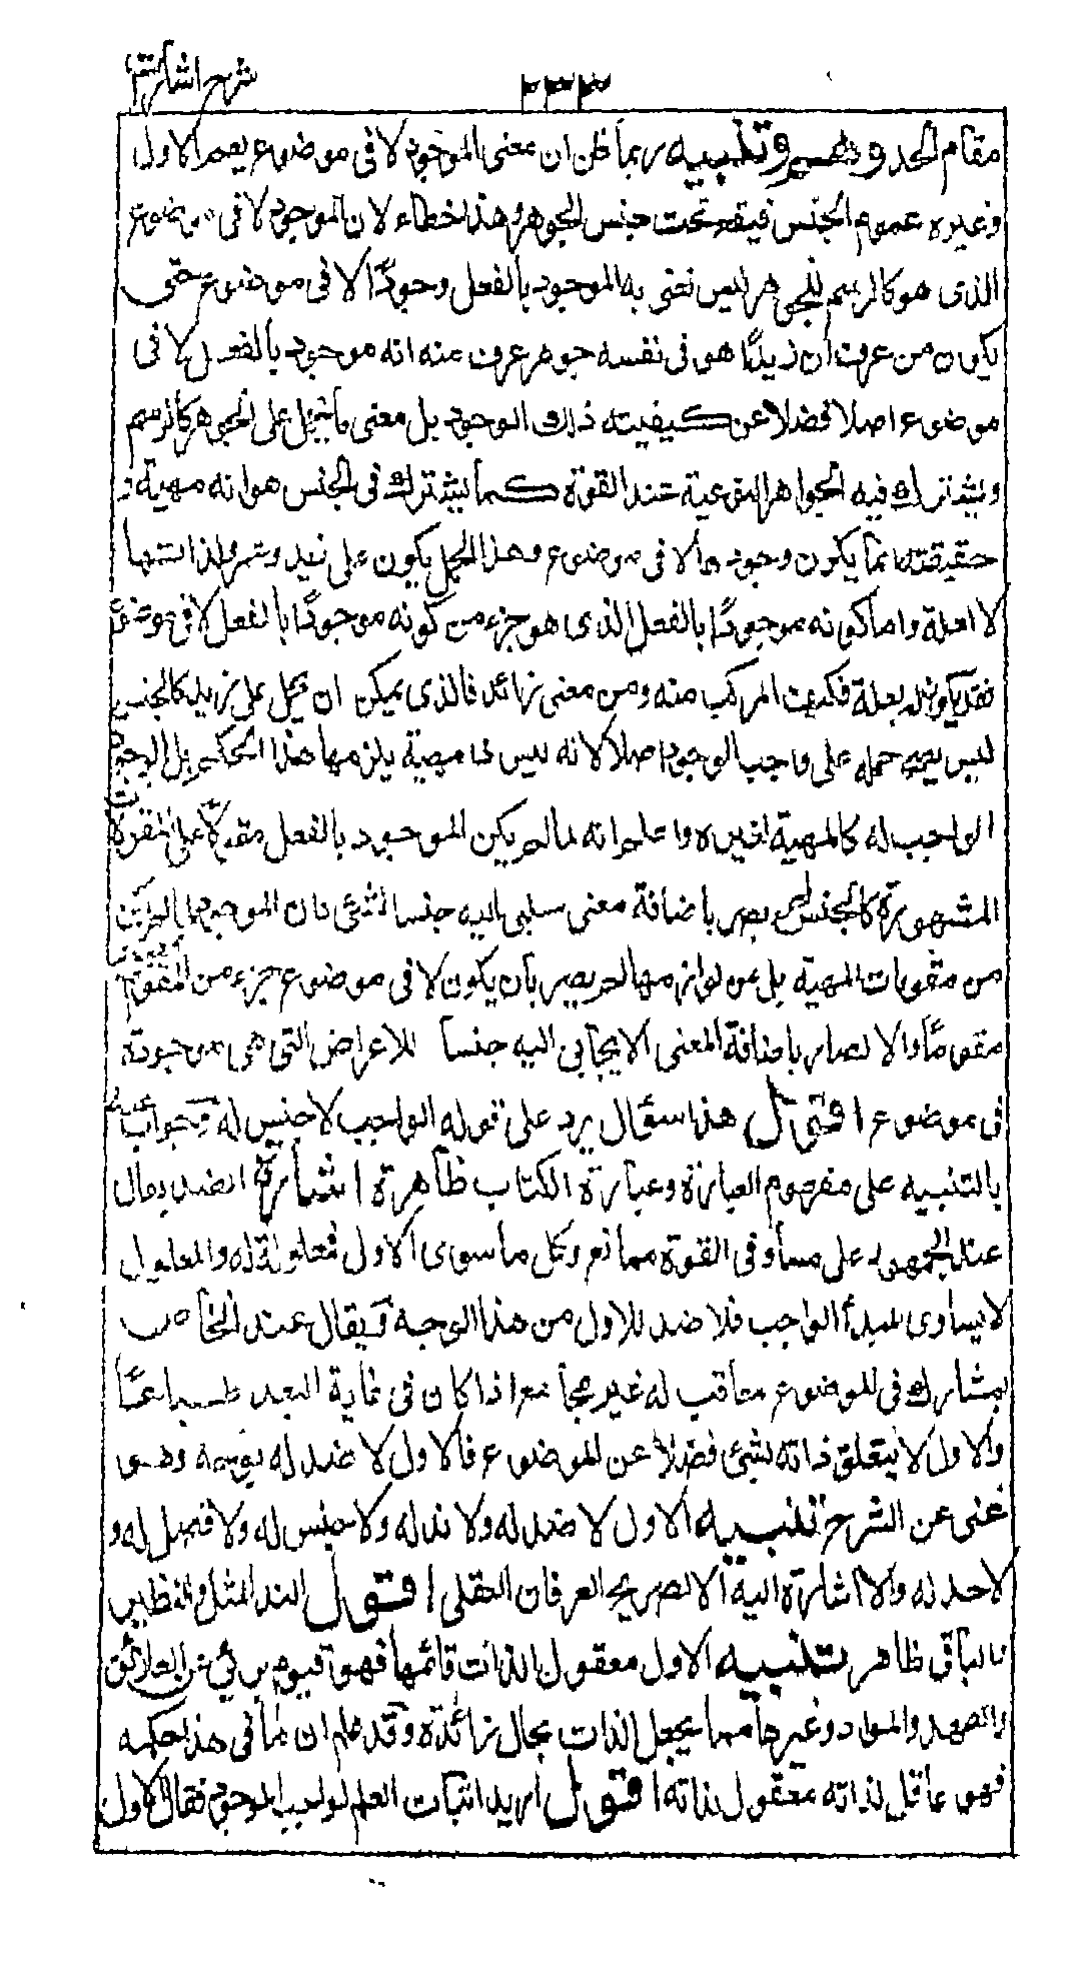 شرح اشارات
٢٣٣
مقام الحد وهم وتنبيه ربما ظن ان معنى الموجود لا فى موضوع يعم الاول
وغيره عموم الجنس فيقع تحت جنس الجوهر وهذا خطاء لان الموجود لا فى موضوع
الذى هو كالرسم للجوهر ليس نعنى به الموجود بالفعل وجودًا لا فى موضوع حتى
يكون من عرف ان زيدًا هو فى نفسه جوهر عرف منه انه موجود بالفعل لا فى
موضوع اصلا فضلا عن كيفيته ذلك الوجود بل معنى ما يحمل على الجوهر كالرسم
ويشترك فيه الجواهر النوعية عند القوة كما يشترك فى الجنس هو انه مهية و
حقيقته انما يكون وجودها لا فى موضوع وهذا الحمل يكون على زيد وعمرو لذاتيهما
لا لعلة واما كونه موجودًا بالفعل الذى هو جزء من كونه موجودًا بالفعل لا فى موضوع
فقد يكون له بعلة فكيف المركب منه ومن معنى زائد فالذى يمكن ان يحمل على زيد كالجنس
ليس يصح حمله على واجب الوجود اصلا لانه ليس ذا مهية يلزمها هذا الحكم بل الوجود
الواجب له كالمهية لغيره واعلم انه لما لم يكن الموجود بالفعل مقولا على المقولات
المشهورة كالجنس لم يصر باضافة معنى سلبى اليه جنسا لشئ فان الموجود لما لم يكن
من مقومات المهية بل من لوازمها لم يصر بان يكون لا فى موضوع جزء من المقوم
مقومًا والا لصار باضافة المعنى الايجابى اليه جنسا للاعراض التى هى موجودة
فى موضوع اقول هذا سؤال يرد على قوله الواجب لا جنس له وجواب عنه
بالتنبيه على مفهوم العبارة وعبارة الكتاب ظاهرة اشارة الضد يقال
عند الجمهور على مساو فى القوة ممانع وكل ما سوى الاول فمعلولة له والمعلول
لا يساوى المبدأ الواجب فلا ضد للاول من هذا الوجه ويقال عند الخاص
لمشارك فى الموضوع معاقب له غير مجامع اذا كان فى غاية البعد طباعًا
والاول لا يتعلق ذاته بشئ فضلا عن الموضوع فالاول لا ضد له بوجه وهو
غنى عن الشرح تنبيه الاول لا ضد له ولا ند له ولا جنس له ولا فصل له و
لا حد له ولا اشارة اليه الا بصريح العرفان العقلى اقول الند المثل والنظير
والباقى ظاهر تنبيه الاول معقول الذات قائمها فهو قيوم برئ عن العلائق
والعهد والمواد وغيرها مما يجعل الذات بحال زائدة وقد علم ان ما فى هذا حكمه
فهو عاقل لذاته معقول لذاته اقول يريد اثبات العلم لواجب الوجود فقال الاول